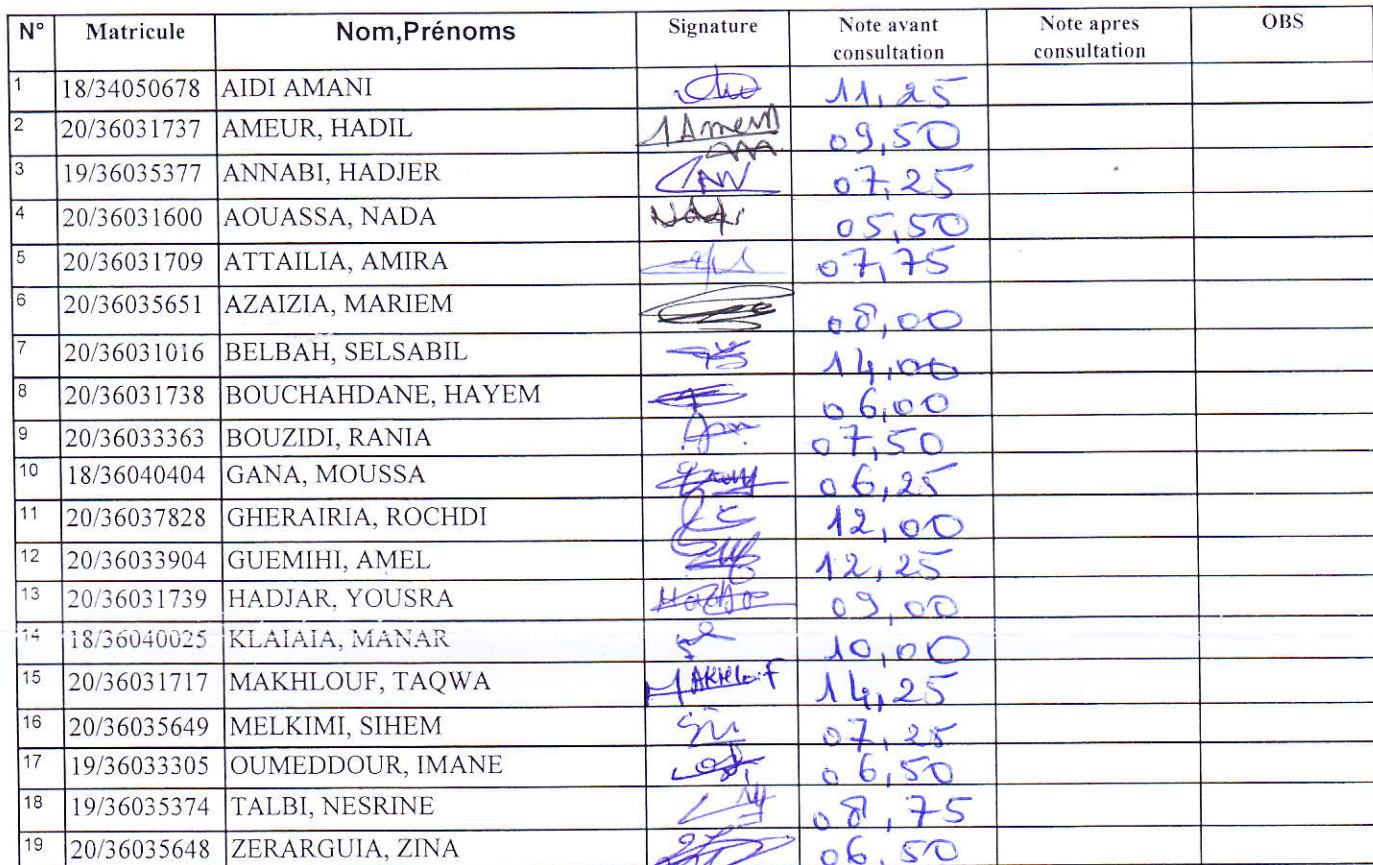 N° Matricule Nom,Prénoms Signature Note avant consultation Note apres consultation OBS
1 18/34050678 AIDI AMANI 11,25
2 20/36031737 AMEUR, HADIL Ameur 09,50
3 19/36035377 ANNABI, HADJER 07,25
4 20/36031600 AOUASSA, NADA 05,50
5 20/36031709 ATTAILIA, AMIRA 07,75
6 20/36035651 AZAIZIA, MARIEM 08,00
7 20/36031016 BELBAH, SELSABIL 14,00
8 20/36031738 BOUCHAHDANE, HAYEM 06,00
9 20/36033363 BOUZIDI, RANIA 07,50
10 18/36040404 GANA, MOUSSA 06,25
11 20/36037828 GHERAIRIA, ROCHDI 12,00
12 20/36033904 GUEMIHI, AMEL 12,25
13 20/36031739 HADJAR, YOUSRA 09,00
14 18/36040025 KLAIAIA, MANAR 10,00
15 20/36031717 MAKHLOUF, TAQWA MAKHLouF 14,25
16 20/36035649 MELKIMI, SIHEM 07,25
17 19/36033305 OUMEDDOUR, IMANE 06,50
18 19/36035374 TALBI, NESRINE 08,75
19 20/36035648 ZERARGUIA, ZINA 06,50